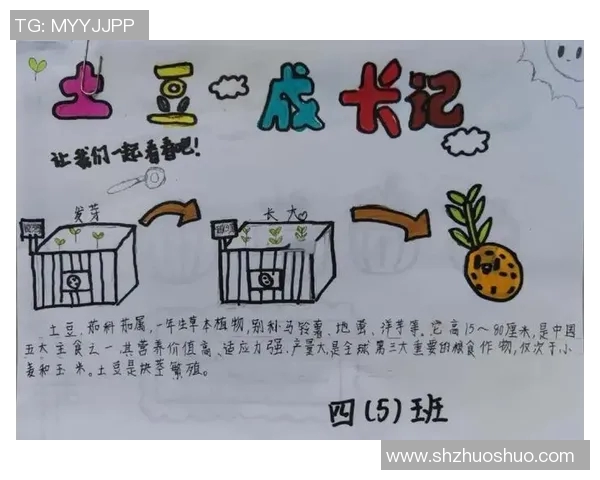 TG: MYYJJPP
土豆成长记
让我们一起看看吧!
发芽
长大
土豆、茄科茄属,一年生草本植物,别称马铃薯、地蛋、洋芋等。它高15~80厘米,是中国
五大主食之一,其营养价值高、适应力强、产量大,是全球第三大重要的粮食作物,仅次于小
麦和玉米。土豆是块茎繁殖。
四(5)班
www.shzhuoshuo.com